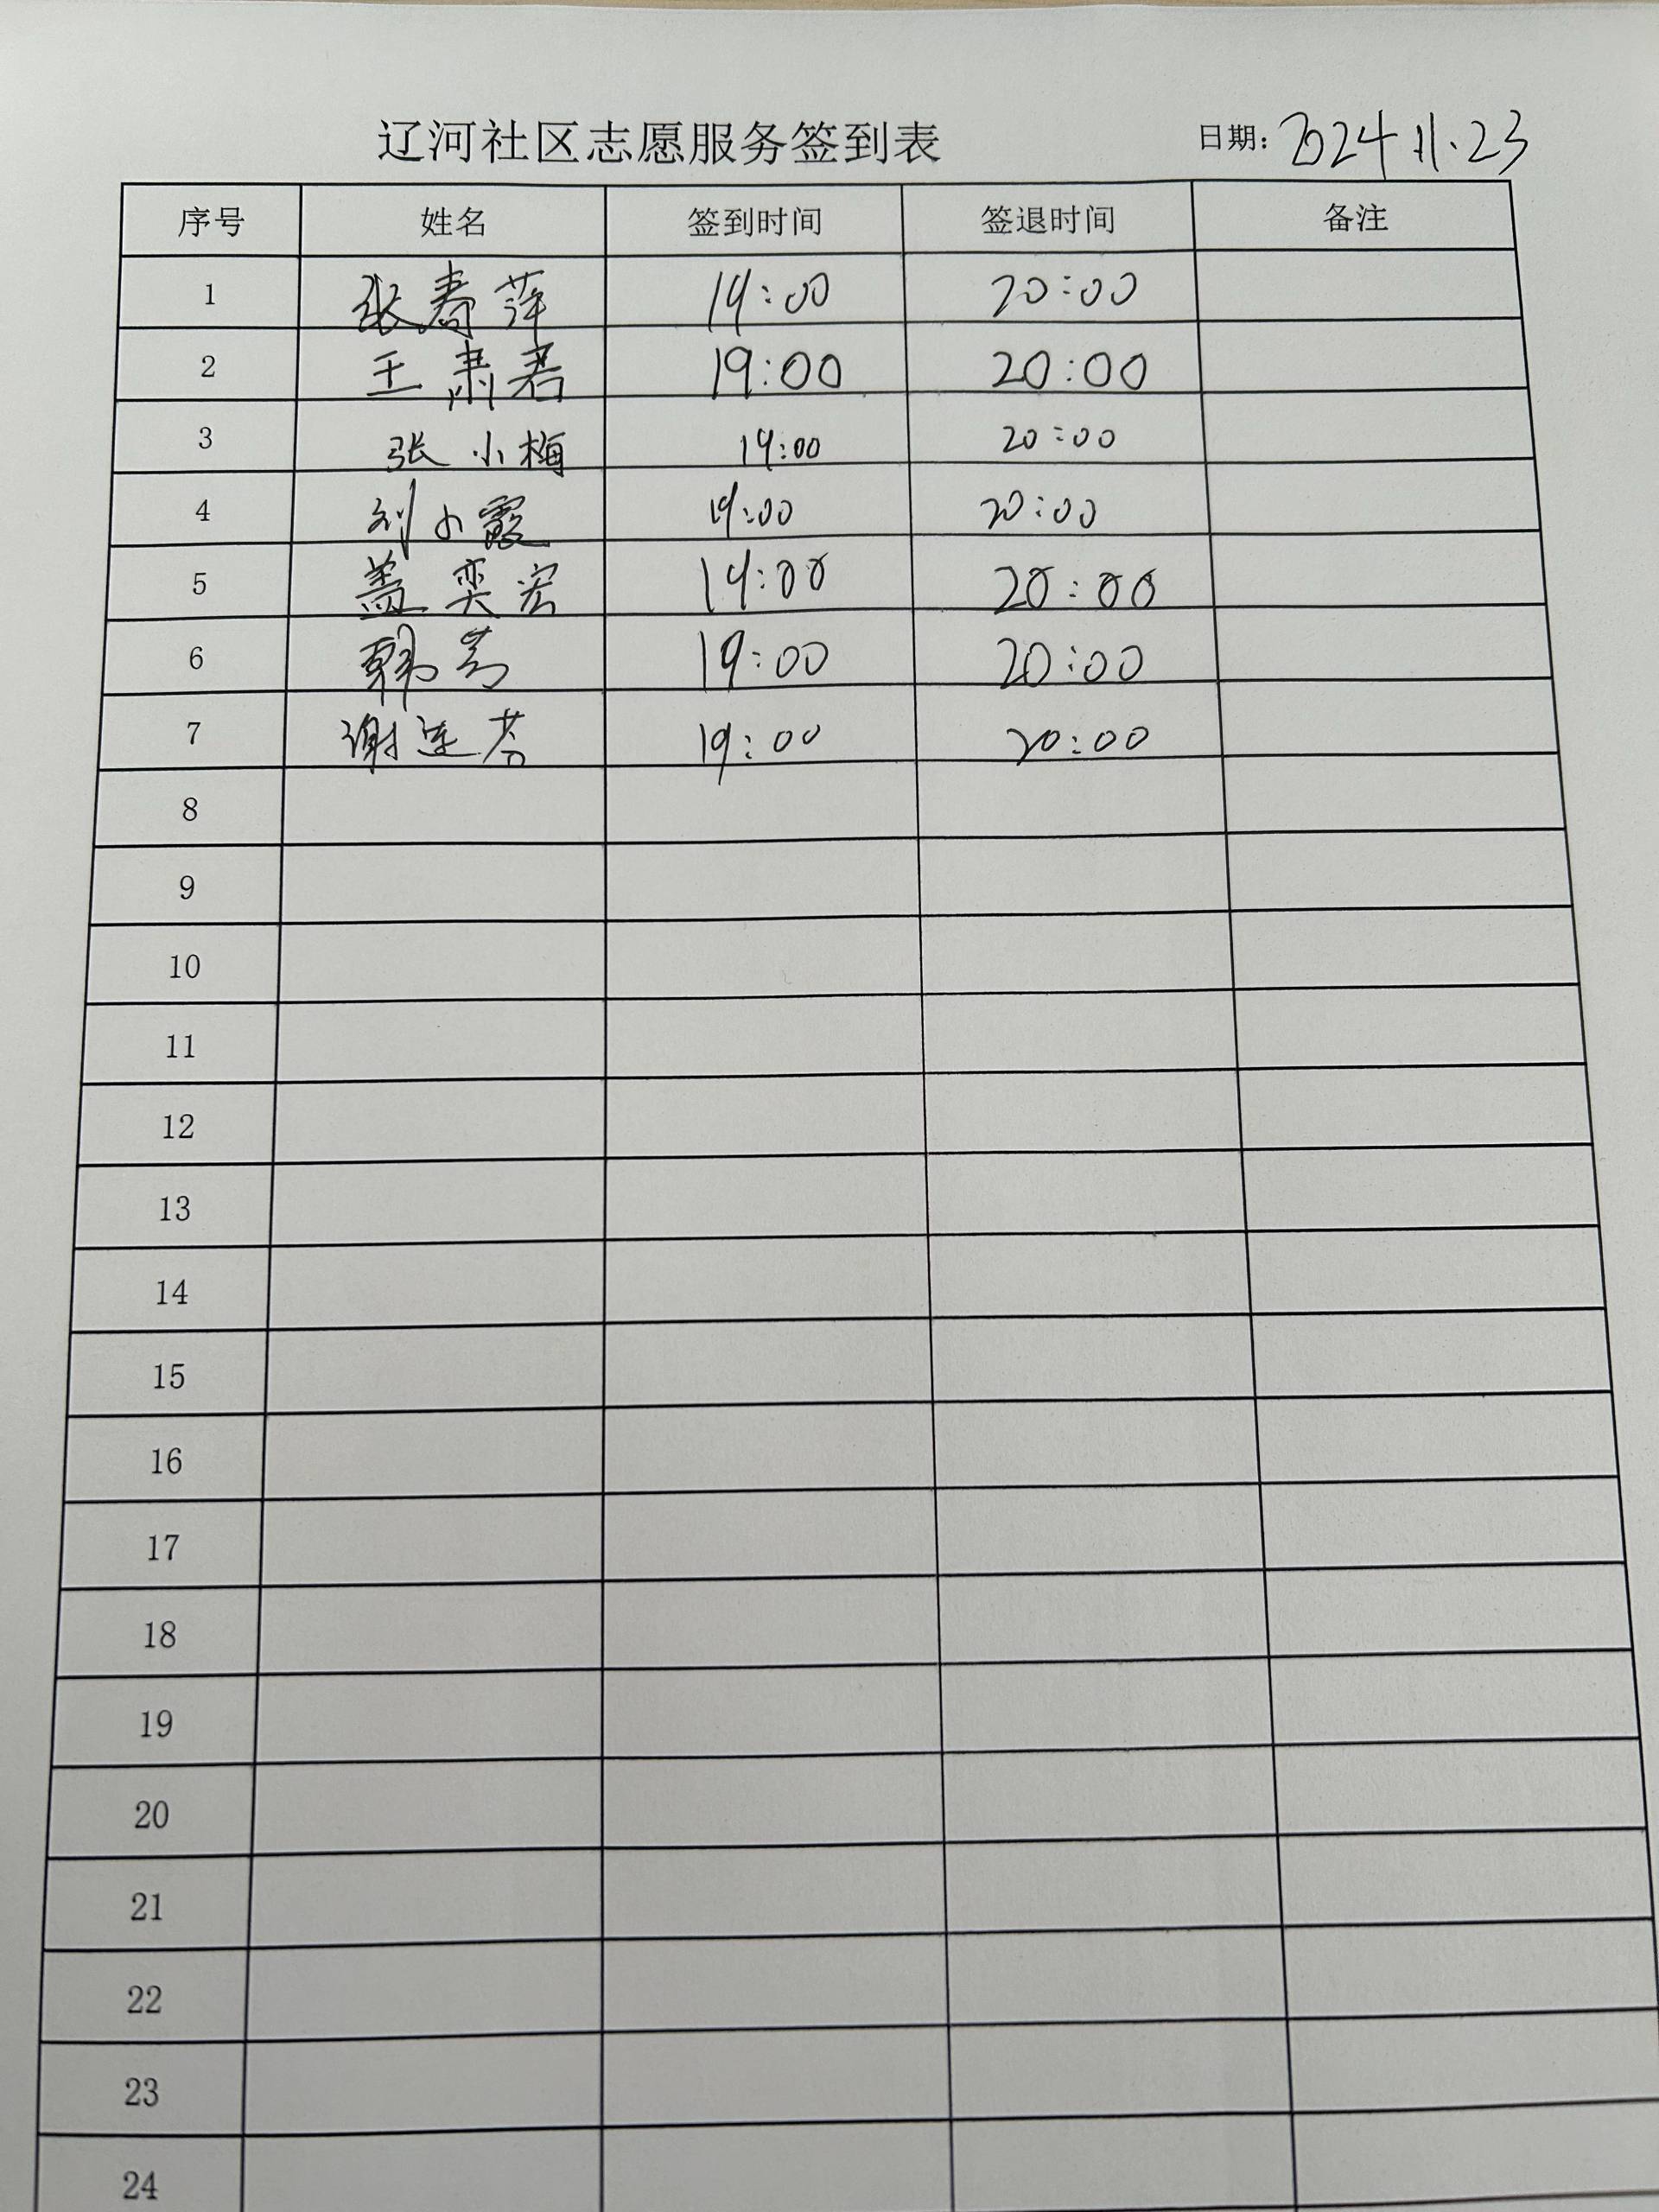 辽河社区志愿服务签到表 日期: 2024.11.23
序号 姓名 签到时间 签退时间 备注
1 张春萍 19:00 20:00
2 王肃君 19:00 20:00
3 张小梅 19:00 20:00
4 刘小霞 19:00 20:00
5 盖奕宏 19:00 20:00
6 韩芳 19:00 20:00
7 谢连芬 19:00 20:00
8
9
10
11
12
13
14
15
16
17
18
19
20
21
22
23
24